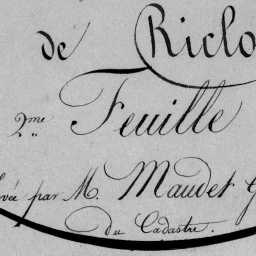 de Riclo
2me Feuille
vée par M. Maudet G
du Cadastre.